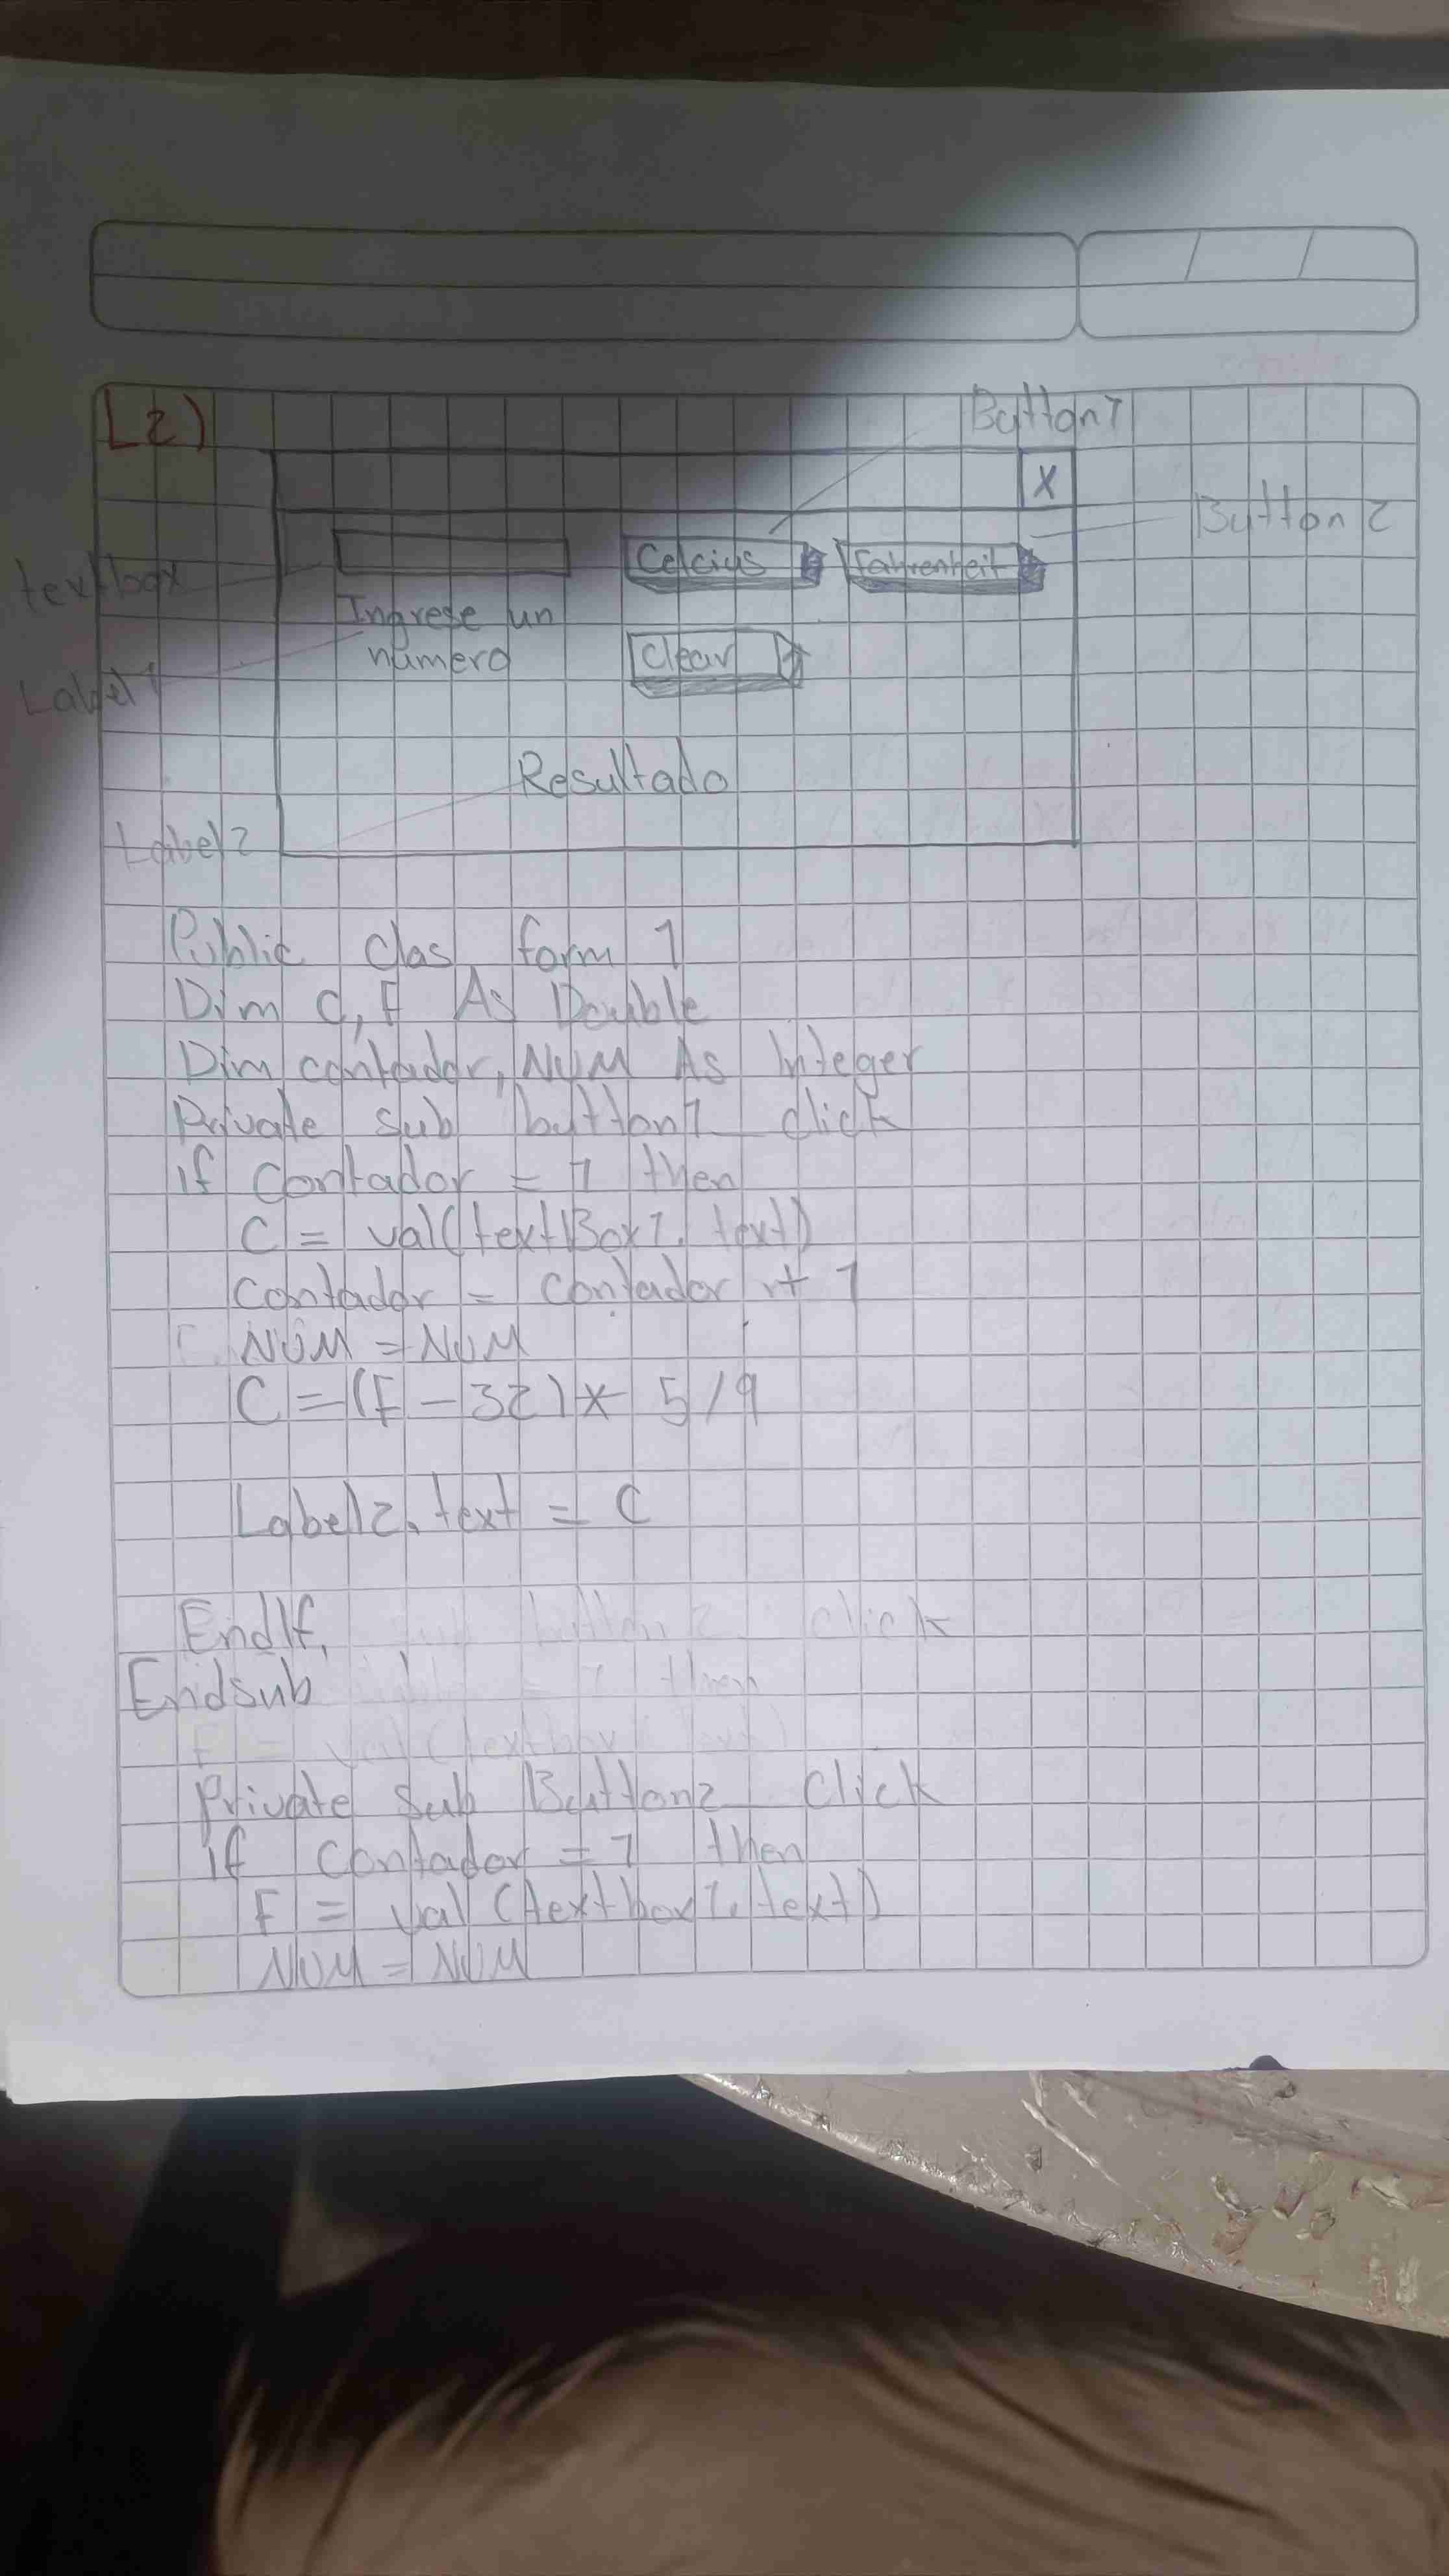 L2)
Button1
X
Button 2
textbox
Celcius
Fahrenheit
Ingrese un
numero
Clear
Label 1
Resultado
Label2
Public clas form 1
Dim C, F As Double
Dim contador, NUM As Integer
Private sub button1 click
if contador = 1 then
C = val(textBox1. text)
contador = contador + 1
NUM = NUM
C = (F - 32) * 5/9
Label2. text = C
EndIf
button2 click
Endsub
then
Private Sub Button2 Click
if contador = 1 then
F = val (textbox1. text)
NUM = NUM